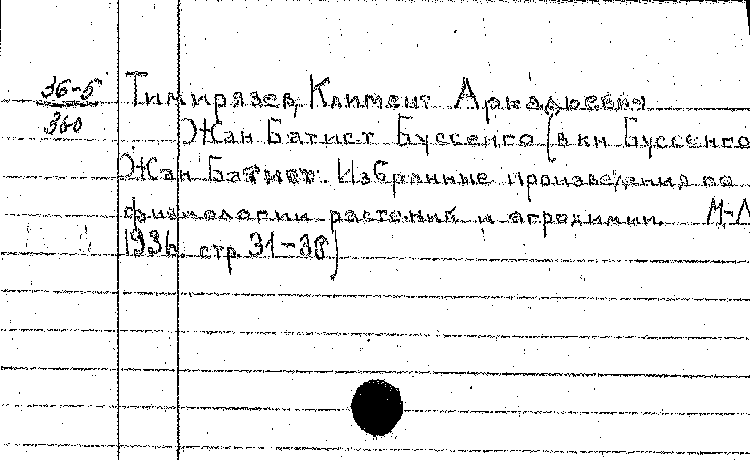 36-5
360
Тимирязев, Климент Аркадьевич
Жан Батист Буссенго [в кн Буссенго
Жан Батист. Избранные произведения по
физиологии растений и агрохимии. М-Л
1936. стр. 31-38]